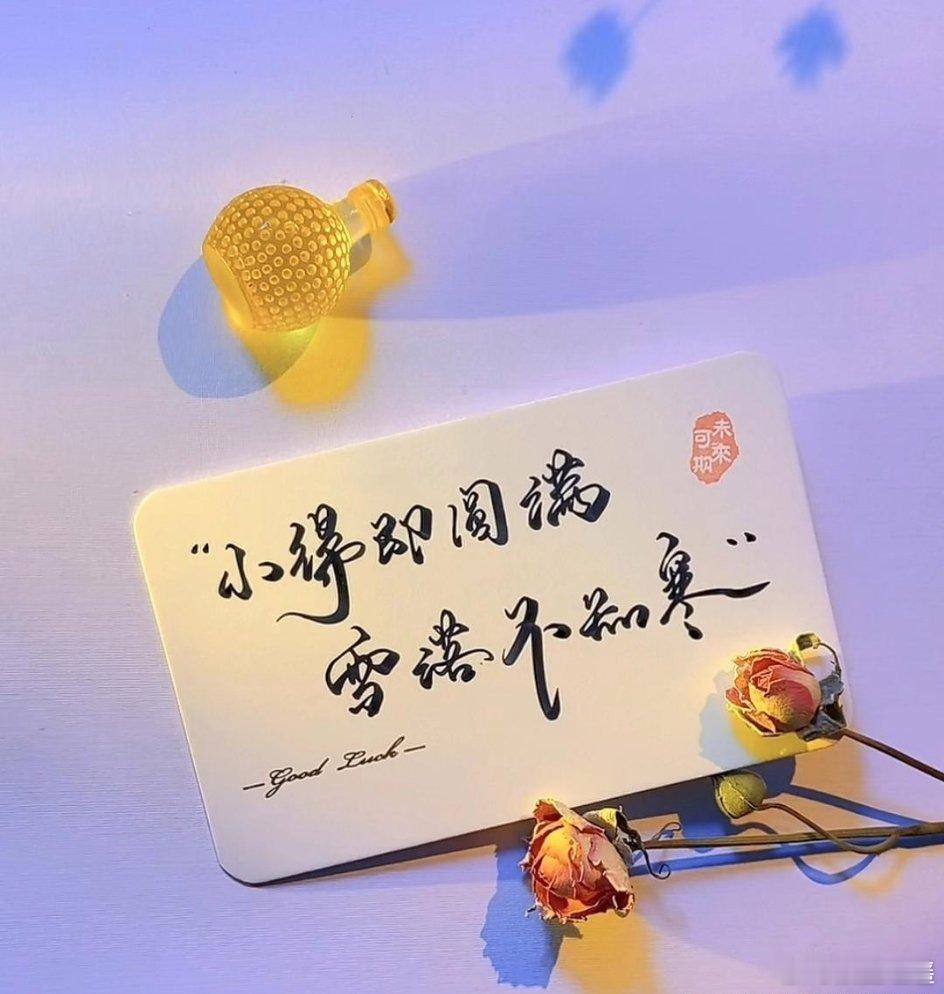 未來
可期
“小得即圆满
雪落不知寒”
—Good Luck—